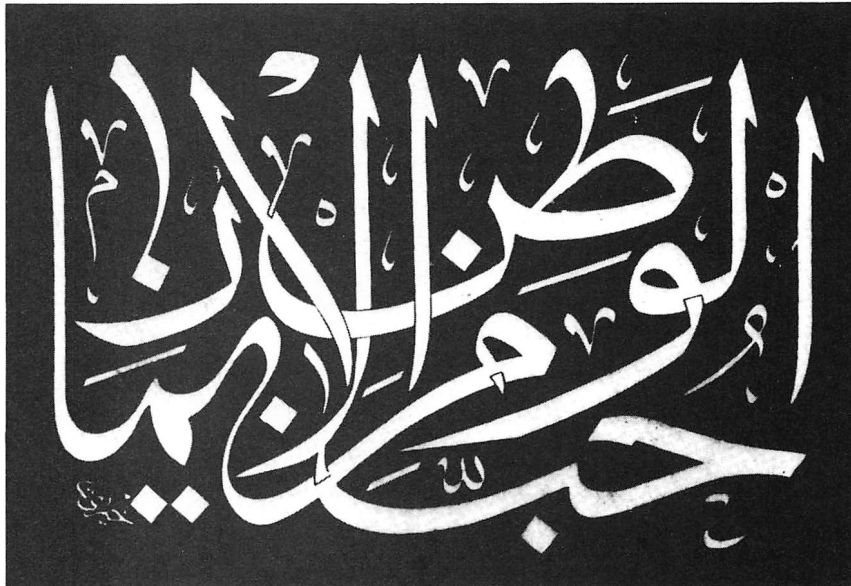 حُبُّ الْوَطَنِ مِنَ الْاِيمَانِ